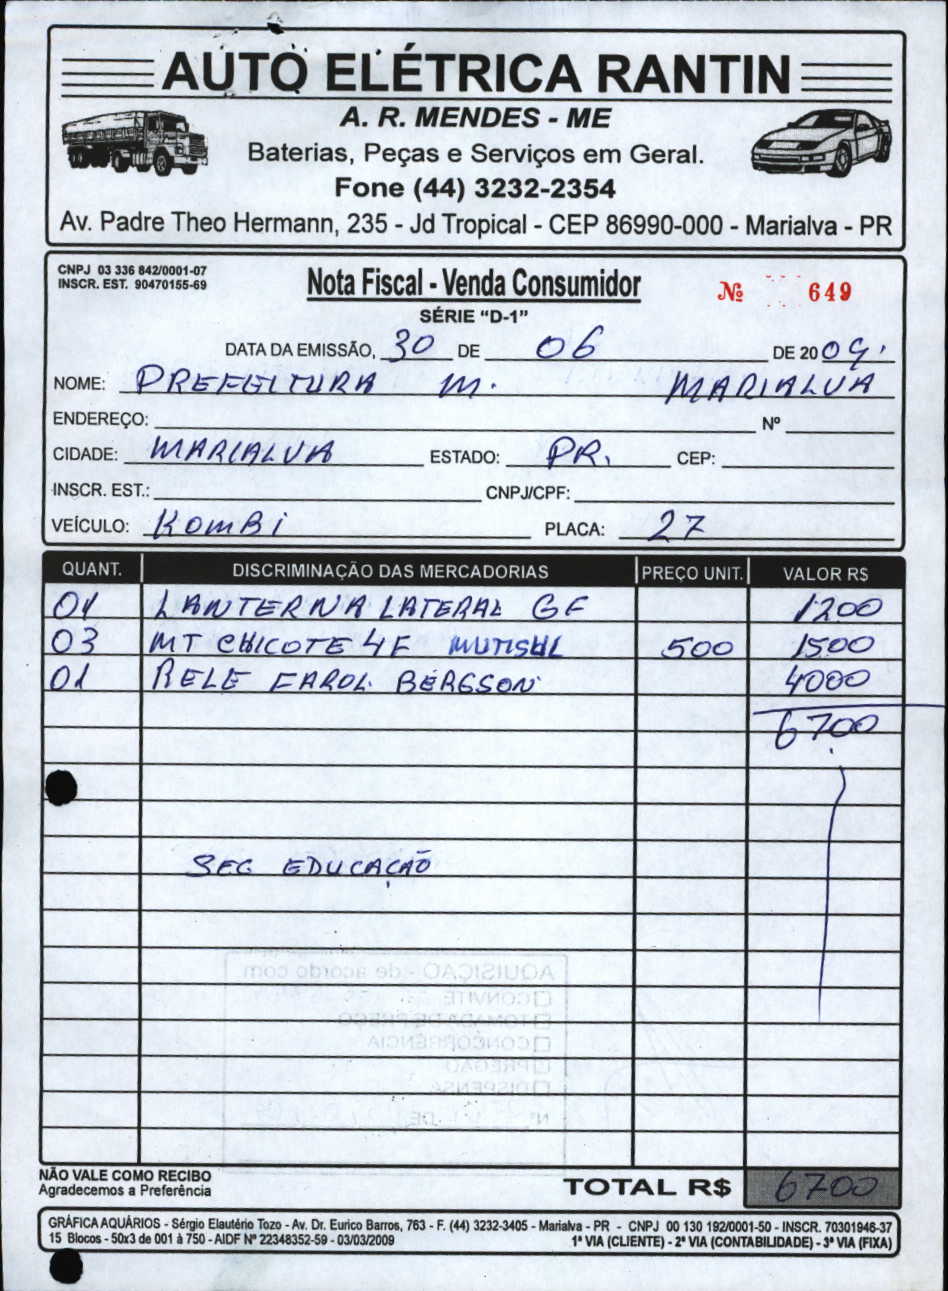 AUTO ELÉTRICA RANTIN
A. R. MENDES - ME
Baterias, Peças e Serviços em Geral.
Fone (44) 3232-2354
Av. Padre Theo Hermann, 235 - Jd Tropical - CEP 86990-000 - Marialva - PR
CNPJ 03 336 842/0001-07
INSCR. EST. 90470155-69
Nota Fiscal - Venda Consumidor
Nº 649
SÉRIE "D-1"
DATA DA EMISSÃO, 30 DE 06 DE 2009.
NOME: PREFEITURA M. MARIALVA
ENDEREÇO: Nº
CIDADE: MARIALVA ESTADO: PR. CEP:
INSCR. EST.: CNPJ/CPF:
VEÍCULO: KOMBI PLACA: 27
QUANT. DISCRIMINAÇÃO DAS MERCADORIAS PREÇO UNIT. VALOR R$
01 LANTERNA LATERAL GF 1200
03 MT CHICOTE 4F 500 1500
01 RELE FAROL BERGSON 4000
6700
SEC EDUCAÇÃO
AQUISIÇÃO - de acordo com
CONVITE
TOMADA DE PREÇO
CONCORRÊNCIA
PREGÃO
DISPENSA
Nº DE
NÃO VALE COMO RECIBO
Agradecemos a Preferência
TOTAL R$ 6700
GRÁFICA AQUÁRIOS - Sérgio Elautério Tozo - Av. Dr. Eurico Barros, 763 - F. (44) 3232-3405 - Marialva - PR - CNPJ 00 130 192/0001-50 - INSCR. 70301946-37
15 Blocos - 50x3 de 001 à 750 - AIDF Nº 22348352-59 - 03/03/2009 1ª VIA (CLIENTE) - 2ª VIA (CONTABILIDADE) - 3ª VIA (FIXA)